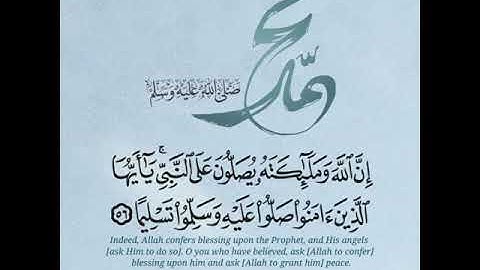 محمد
صَلَّى اللهُ عَلَيْهِ وَسَلَّمَ
إِنَّ ٱللَّهَ وَمَلَٰٓئِكَتَهُۥ يُصَلُّونَ عَلَى ٱلنَّبِيِّۚ يَٰٓأَيُّهَا
ٱلَّذِينَ ءَامَنُوا۟ صَلُّوا۟ عَلَيْهِ وَسَلِّمُوا۟ تَسْلِيمًا ۝٥٦
Indeed, Allah confers blessing upon the Prophet, and His angels
[ask Him to do so]. O you who have believed, ask [Allah to confer]
blessing upon him and ask [Allah to grant him] peace.